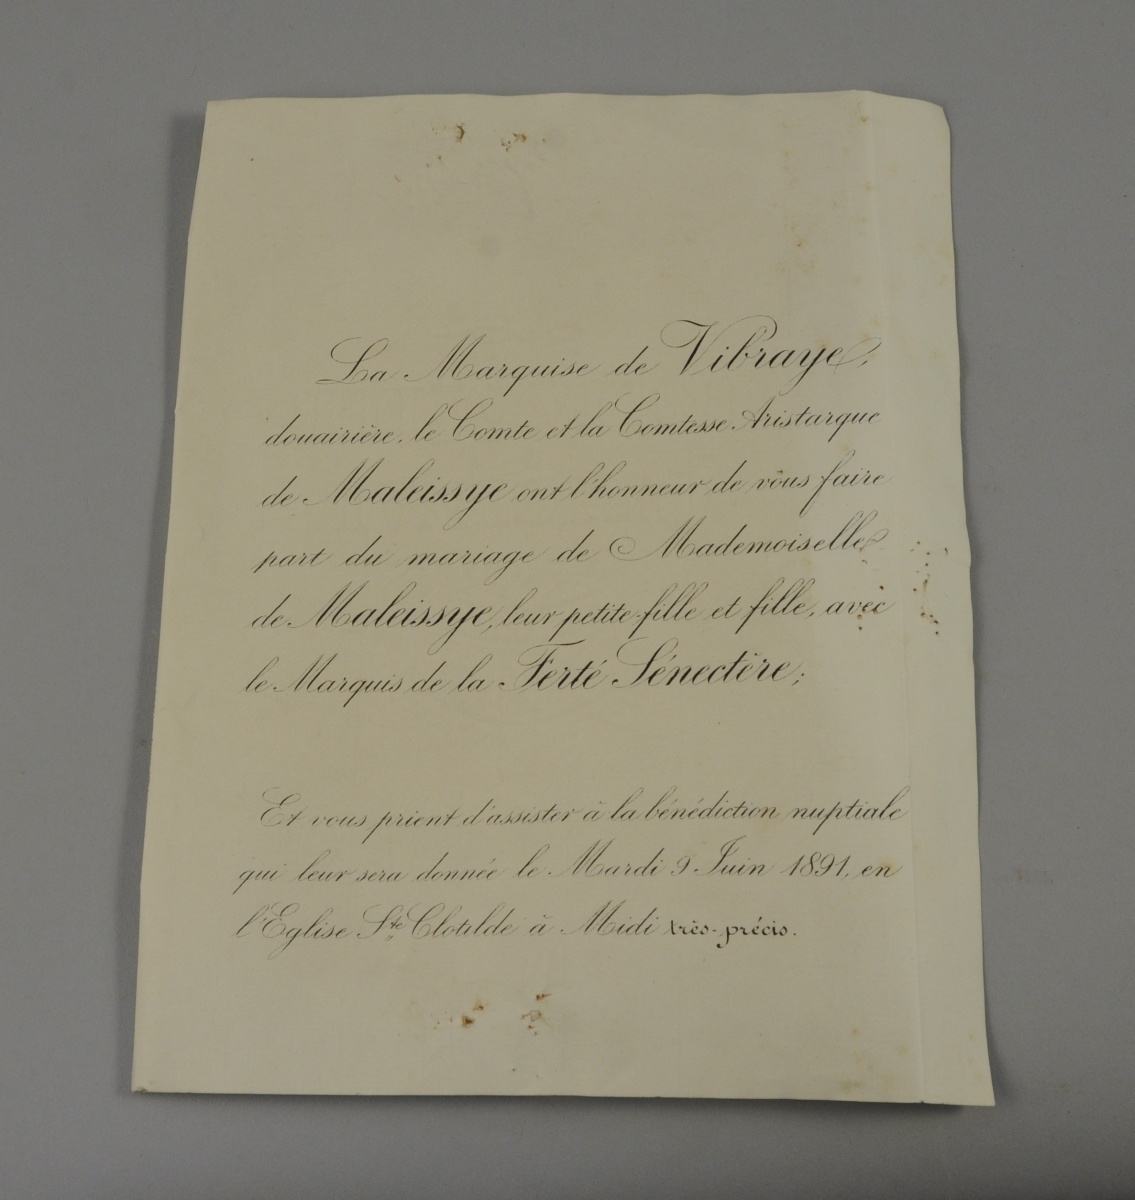 La Marquise de Vibraye,
douairière, le Comte et la Comtesse Aristarque
de Maleissye ont l'honneur de vous faire
part du mariage de Mademoiselle
de Maleissye, leur petite-fille et fille, avec
le Marquis de la Ferté Sénectère;
Et vous prient d'assister à la bénédiction nuptiale
qui leur sera donnée le Mardi 9 Juin 1891, en
l'Eglise Ste Clotilde à Midi très-précis.